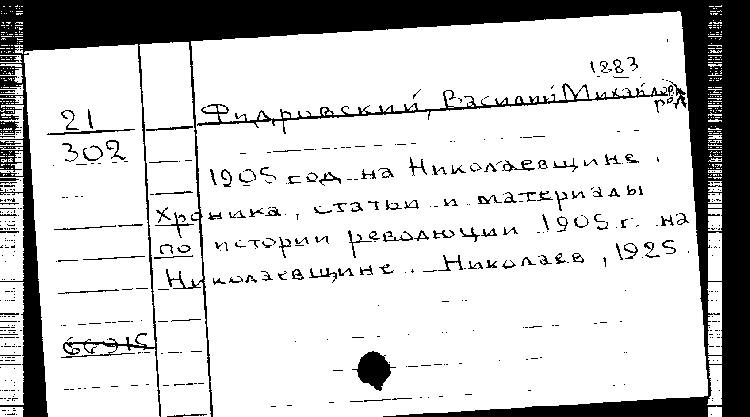 1883
21
Фидровский, Василий Михайлов.
род.
302
1905 год на Николаевщине.
Хроника, статьи и материалы
по истории революции 1905 г. на
Николаевщине. Николаев, 1925.